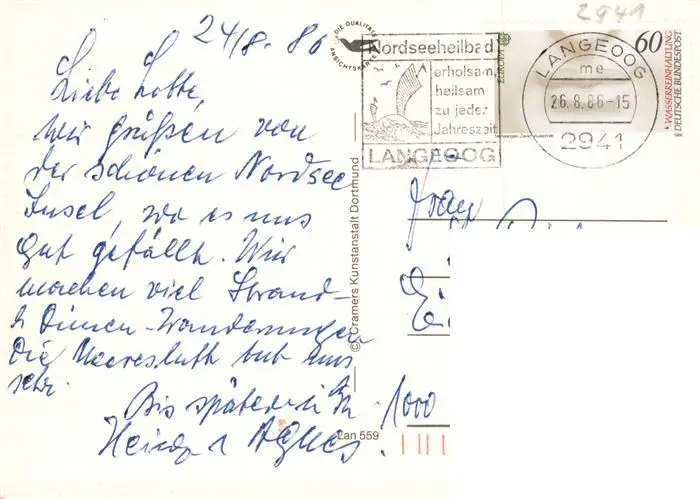 24/8. 86
Liebe Lotte,
wir grüßen von
der schönen Nordsee
Insel, wo es uns
gut gefällt. Wir
machen viel Strand-
& Dünen-Wanderungen
Die Meeresluft tut uns
sehr.
Bis späterhin
Heinz & Agnes.
DIE QUALITÄTS
ANSICHTSKARTE
© Cramers Kunstanstalt Dortmund
Lan 559
Nordseeheilbad
erholsam,
heilsam
zu jeder
Jahreszeit
LANGEOOG
EUROPA
60
WASSERREINHALTUNG
DEUTSCHE BUNDESPOST
LANGEOOG
me
26.8.86-15
2941
2941
Frau
1000